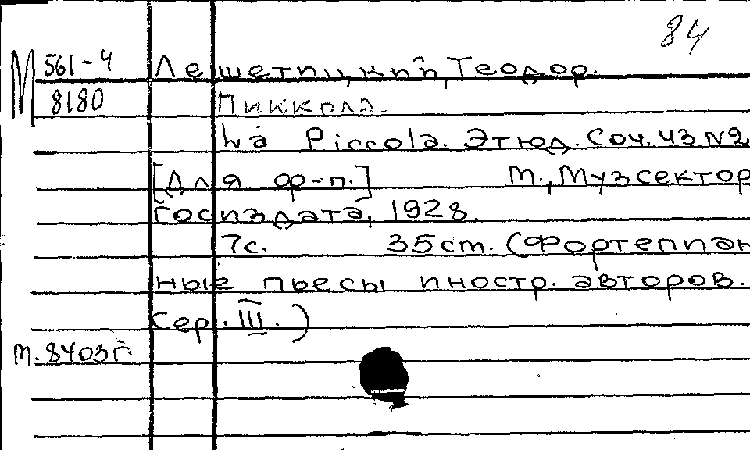 84
М 561-4 Лешетицкий, Теодор.
8180 Пиккола.
La Piccola. Этюд. Соч. 43 №2
[Для ф-п.] М., Музсектор
Госиздата, 1928.
7с. 35cm. (Фортепиан
ные пьесы иностр. авторов.
Сер. III.)
М. 8703г